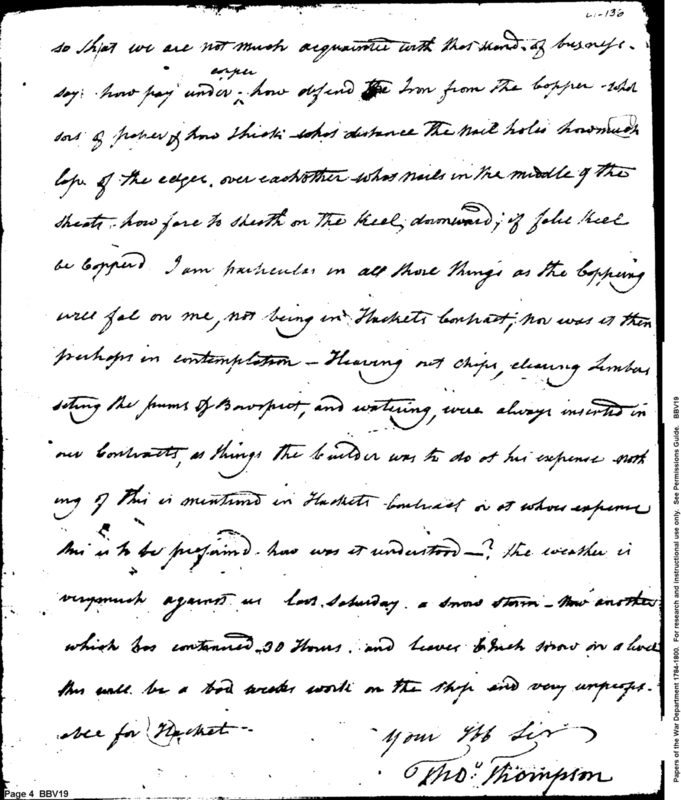 so that we are not much acquainted with that kind of business.
say: how pay under ^ how defend the Iron from the Copper - what
sort of paper & how thick - what distance the nail holes how much
lape of the edges. over eachother what nails in the middle of the
sheats. how fare to sheath on the keel, downward; if false keel
be Copperd I am particular in all those things as the Coppering
will fal on me, not being in Hackets Contract; nor was it then
perhaps in contemplation - Heaving out chips, clearing Limbers
seting the pums & Bowsprit, and watering, were always inserted in
our Contracts, as things the builder was to do at his expense noth
ing of this is mentiond in Hackets Contract or at whose expense
this is to be prefomd. how was it understood -? the weather is
verymuch against us last Saturday a snow storm - Now another
which has continued 30 Hours. and leaves Inch snow on a level
this will be a bad weeks work on the ship and very unprofit-
able for Hacket -
Your Sir
Tho.s Thompson
Page 4 BBV19
Papers of the War Department 1784-1800. For research and instructional use only. See Permissions Guide. BBV19